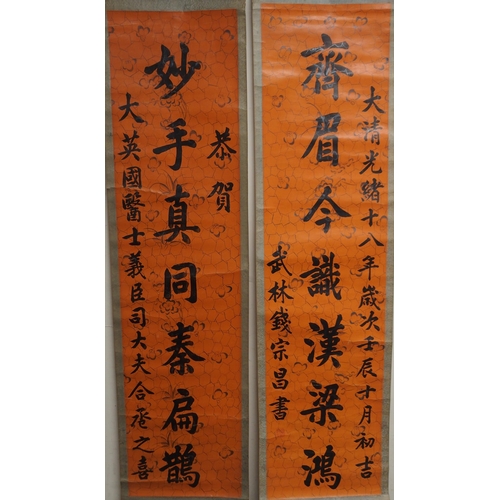 大清光緒十八年歲次壬辰十月初吉
齊眉今識漢梁鴻
武林錢宗昌書
恭賀
妙手真同秦扁鵲
大英國醫士義臣司大夫合巹之喜